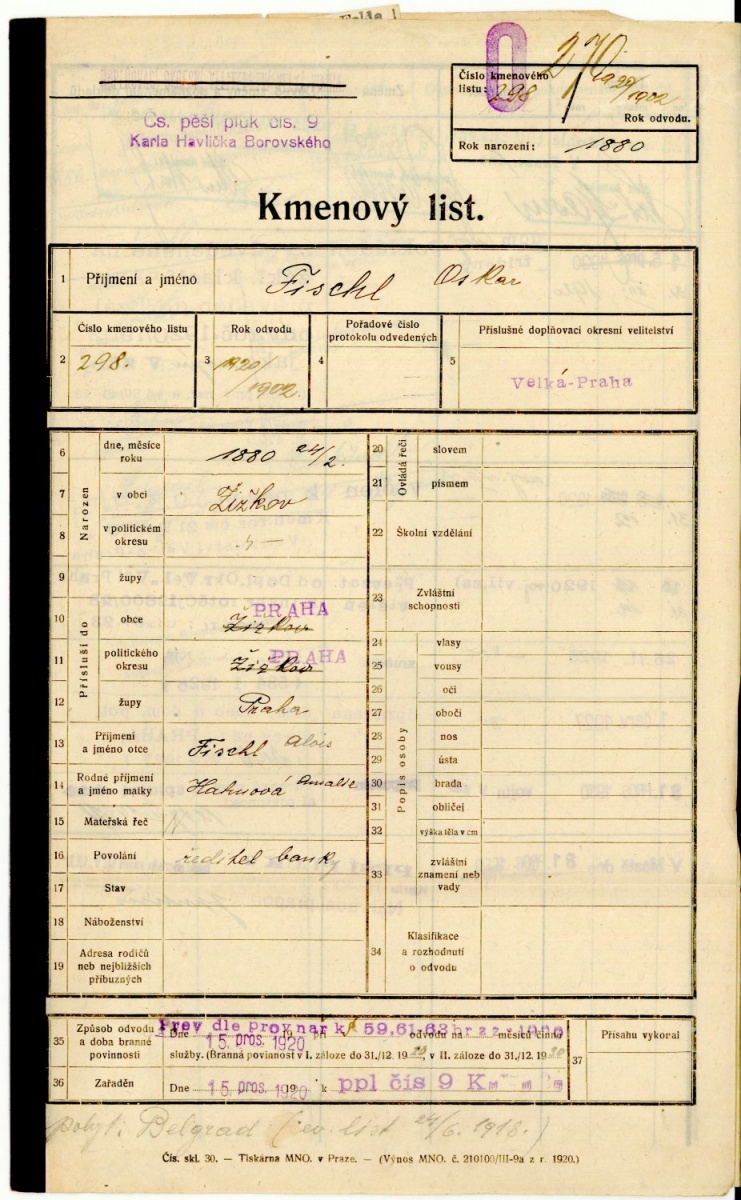 270
Číslo kmenového
listu: 298
1920/1902
Rok odvodu.
Rok narození: 1880
Čs. pěší pluk čís. 9
Karla Havlíčka Borovského
Kmenový list.
1 Příjmení a jméno Fischl Oskar
2 Číslo kmenového listu 298.
3 Rok odvodu 1920/1902
4 Pořadové číslo
protokolu odvedených
5 Příslušné doplňovací okresní velitelství
Velká-Praha
Narozen
6 dne, měsíce
roku 1880 24/2.
7 v obci Žižkov
8 v politickém
okresu
9 župy
Přísluší do
10 obce Žižkov PRAHA
11 politického
okresu Žižkov PRAHA
12 župy Praha
13 Příjmení
a jméno otce Fischl Alois
14 Rodné příjmení
a jméno matky Hahnová Amalie
15 Mateřská řeč
16 Povolání ředitel banky
17 Stav
18 Náboženství
19 Adresa rodičů
neb nejbližších
příbuzných
Ovládá řeči
20 slovem
21 písmem
22 Školní vzdělání
23 Zvláštní
schopnosti
Popis osoby
24 vlasy
25 vousy
26 oči
27 obočí
28 nos
29 ústa
30 brada
31 obličej
32 výška těla v cm
33 zvláštní
znamení neb
vady
34 Klasifikace
a rozhodnutí
o odvodu
35 Způsob odvodu
a doba branné
povinnosti
Prev dle prov nar k § 59,61,63 br z z - 1920
Dne 15 pros. 1920 při odvodu na měsíců činné
služby. (Branná povinnost v I. záloze do 31./12. 1920, v II. záloze do 31./12. 1930
36 Zařaděn Dne 15 pros. 1920 k ppl čís 9 K
37 Přísahu vykonal
pobyt: Belgrad (ev. list 24/6. 1918.)
Čís. skl. 30. — Tiskárna MNO. v Praze. — (Výnos MNO. č. 210100/III-9a z r. 1920.)